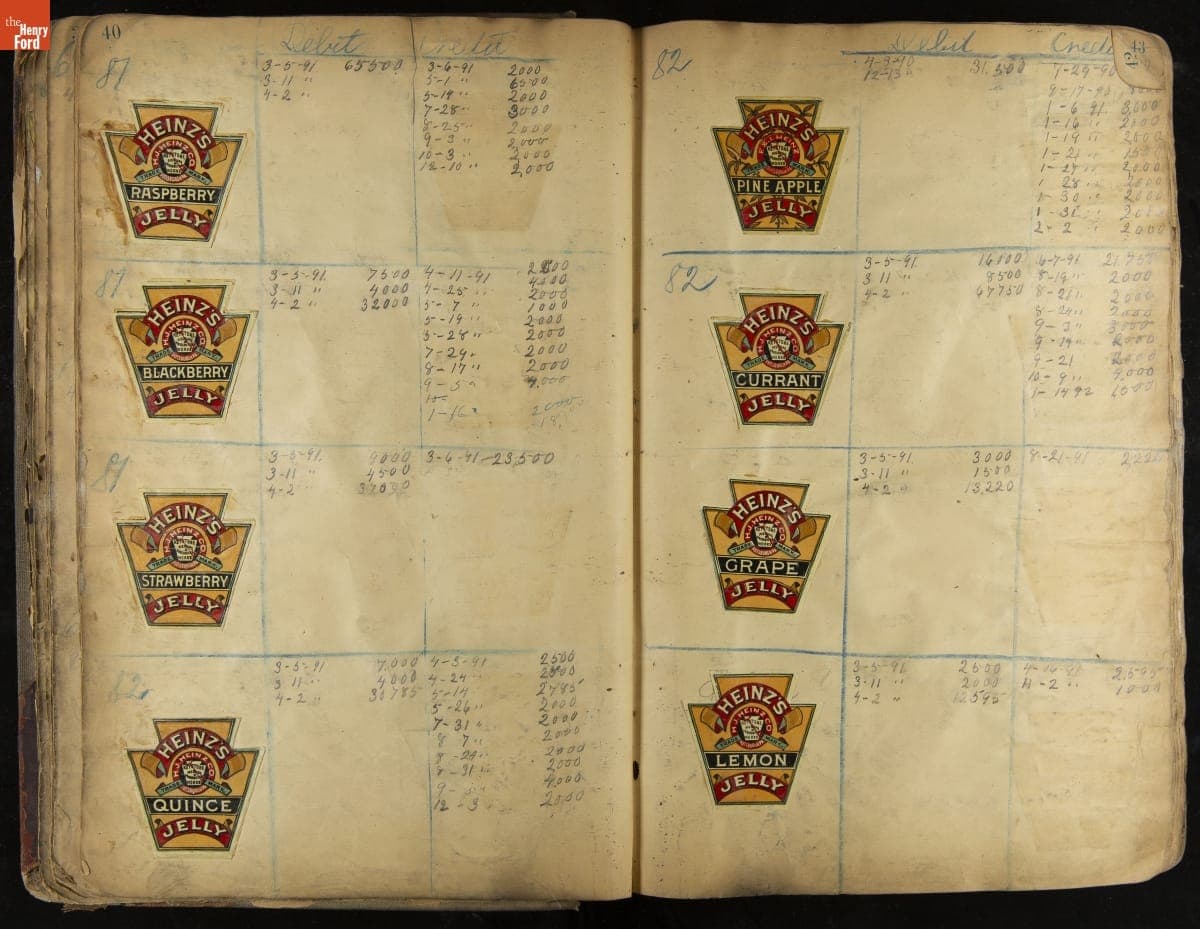 the
Henry
Ford
40
Debit Credit
81
3-5-91 65500
3-11 "
4-2 "
3-6-91 2000
5-1 " 6500
5-19 " 2000
7-28 " 3000
8-25 " 2000
9-3 " 2,000
10-3 " 2,000
12-10 " 2,000
HEINZ'S
H.J. HEINZ CO.
KEYSTONE
TRADE MARK
RASPBERRY
JELLY
81
3-5-91 7500
3-11 " 4000
4-2 " 32000
4-11-91
4-25 "
5-7 " 1000
5-19 " 2000
5-28 " 2000
7-29 " 2000
8-17 " 2000
9-5 " 4,000
1-16 " 2000
HEINZ'S
H.J. HEINZ CO.
KEYSTONE
TRADE MARK
BLACKBERRY
JELLY
81
3-5-91 9000
3-11 " 4500
4-2 "
3-6-91 23,500
HEINZ'S
H.J. HEINZ CO.
KEYSTONE
TRADE MARK
STRAWBERRY
JELLY
82
3-5-91 7,000
3-11 " 4000
4-2 " 30785
4-3-91 2500
4-24 "
5-14 2785
5-26 " 2000
7-31 " 2000
8 7 " 2000
8-24 " 2000
8-31 " 2000
9- 4,000
12-3 2000
HEINZ'S
H.J. HEINZ CO.
KEYSTONE
TRADE MARK
QUINCE
JELLY
43
Debit Credit
82
4-3-90 31,500
12-13 "
9-17-90
1-6 91 3,000
1-16 " 2,000
1-19 "
1-21 "
1-27 " 2000
1 28 " 2000
1-30 " 2000
1-31 " 2000
2-2 " 2,000
HEINZ'S
TRADE MARK
PINE APPLE
JELLY
82
3-5-91 16100
3 11 " 8500
4-2 " 67750
6-7-91
8-19 " 2000
8-21 " 2000
8-24 " 2000
9-3 " 3000
9-14 " 2000
9-21 2000
10-9 " 9,000
1-14 92 1500
HEINZ'S
H.J. HEINZ CO.
KEYSTONE
TRADE MARK
CURRANT
JELLY
3-5-91 3000
3-11 " 1500
4-2 " 13,220
8-21-91
HEINZ'S
H.J. HEINZ CO.
KEYSTONE
TRADE MARK
GRAPE
JELLY
3-5-91 2500
3-11 " 2000
4-2 " 12595
4-2 " 1000
HEINZ'S
H.J. HEINZ CO.
KEYSTONE
TRADE MARK
LEMON
JELLY